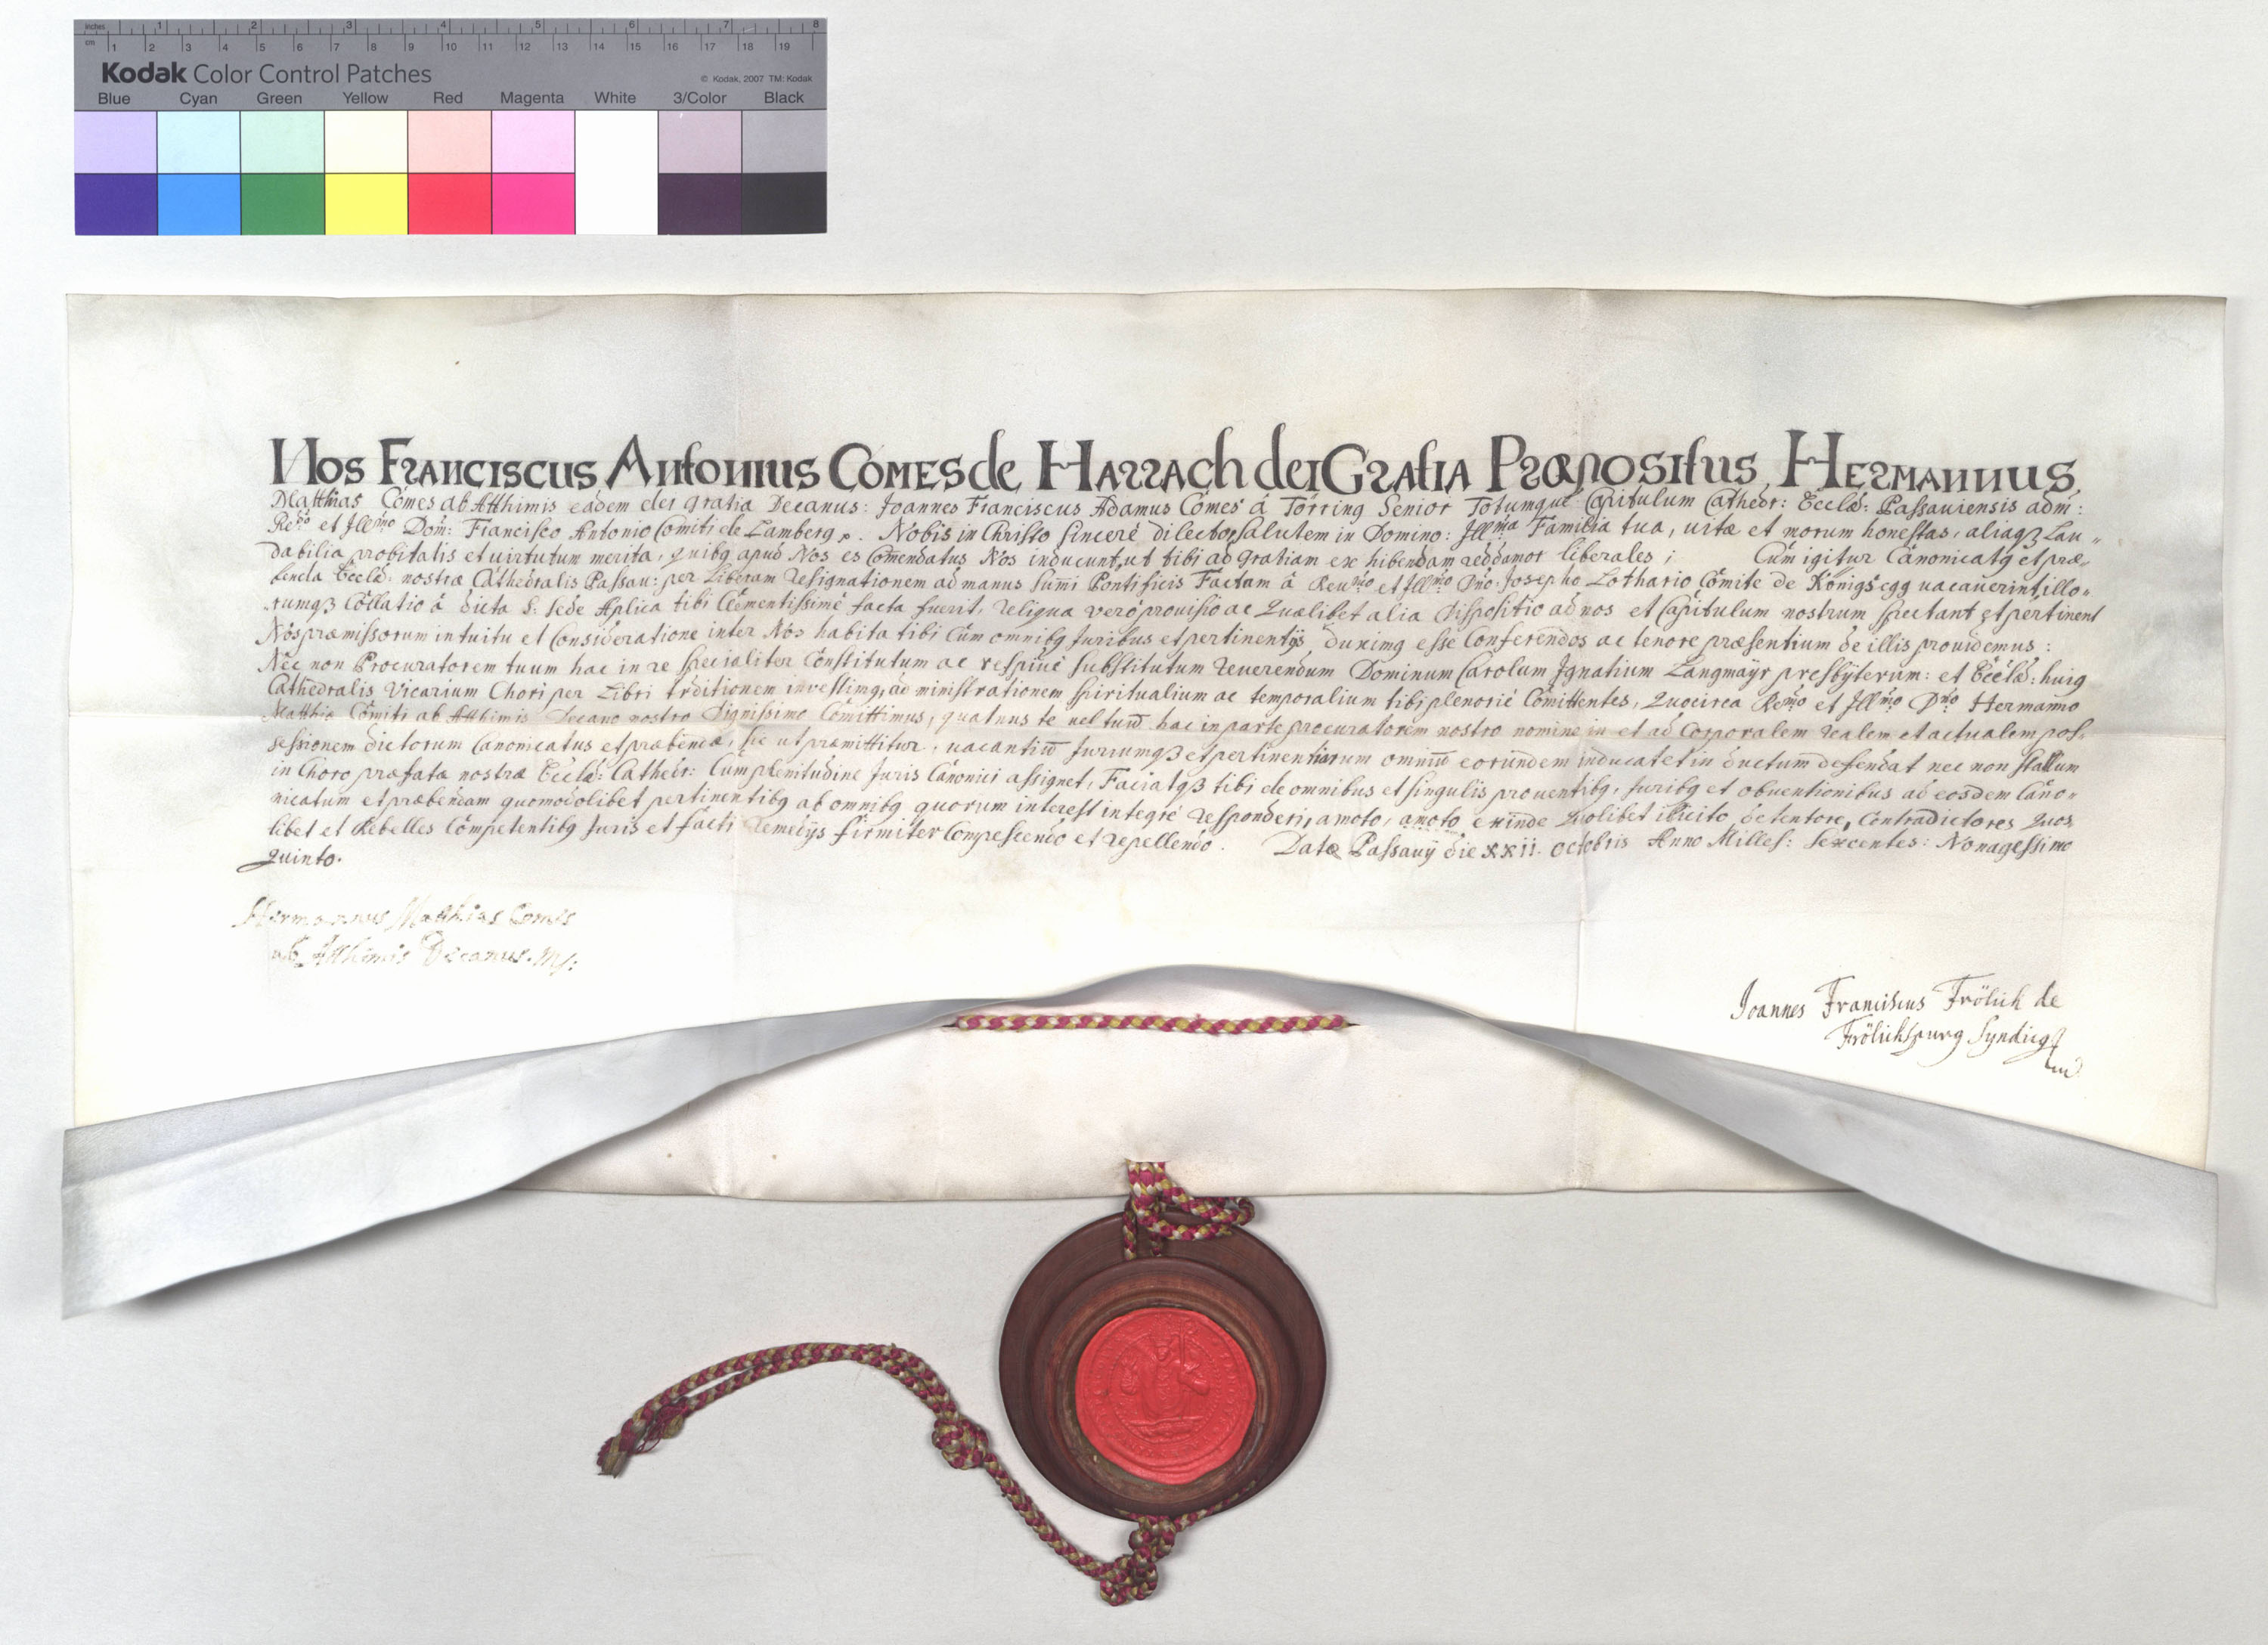 inches 1 2 3 4 5 6 7 8
cm 1 2 3 4 5 6 7 8 9 10 11 12 13 14 15 16 17 18 19
Kodak Color Control Patches © Kodak, 2007 TM: Kodak
Blue Cyan Green Yellow Red Magenta White 3/Color Black
Nos Franciscus Antonius Comes de Harrach dei Gratia Præpositus, Hermannus
Matthias Comes ab Atthimis eadem dei gratia Decanus: Joannes Franciscus Adamus Comes á Törring Senior Totumque Capitulum Cathedr: Eccläe: Passauiensis adm:
Reṽdo et Jllmo Dom: Francisco Antonio Comiti de Lamberg p. Nobis in Christo sincere dilecto, salutem in Domino: Jllma Familia tua, uitæ et morum honestas, aliaqȝ Lau„
dabilia probitatis et uirtutum merita, quibq apud Nos es Comendatus Nos inducunt, ut tibi ad gratiam exhibendam reddamor liberales; Cúm igitur Canonicatq et præ„
benda Eccläe: nostræ Cathedralis Passau: per Liberam resignationem ad manus sum̃i Pontificis Factam á Reumo et Jllmo Dno: Josepho Lothario Comite de Königsegg uacauerint, illo„
rumqȝ Collatio á dicta S: Sede Aplica tibi Clementissimé facta fuerit, reliqua veró prouisio ac Quælibet alia dispositio ad nos et Capitulum nostrum spectant et pertinent
Nos præmissorum intuitu et Consideratione inter Nos habita tibi Cum omnibq Juribus et pertinentijs, duximq esse Conferendos ac tenore præsentium de illis prouidemus:
Nec non Procuratorem tuum hac in re specialiter Constitutum ac respiué substitutum reuerendum Dominum Carolum Jgnatium Langmaÿr presbÿterum: et Eccläe: huiq
Cathedralis Vicarium Chori per Libri trãditionem inuestimq, ad ministrationem spiritualium ac temporalium tibi plenarié Comittentes, Quocirca Remo et Jllmo Dno Hermanno
Matthiæ Comiti ab Atthimis Decano nostro Dignissimo Comittimus, quatnus te uel tuum̃ hac in parte procuratorem nostro nomine in et ad Corporalem realem et actualem pos„
sessionem dictorum Canonicatus et præbendæ, sic ut præmittitur, uacantium̃ Juriumqȝ et pertinentiarum omnium̃ eorundem inducat et inductum defendat nec non stallum
in Choro præfatæ nostræ Eccläe: Cathedr: Cum plenitudine Juris Canonici assignet, Faciatqȝ tibi de omnibus et singulis prouentibq, Juribq et obuentionibus ad eosdem Cano„
nicatum et præbendam quomodolibet pertinentibq ab omnibq quorum interest integré responderi, amoto, amoto exinde Quolibet illicito detentore, Contradictores Quos
libet et Rebelles Competentibq Juris et facti remedijs firmiter Compescendo et repellendo. Datæ Passauij die XXII. Octobris Anno Milles: Sexcentes: Nonagessimo
Quinto.
Hermannus Matthias Comes
ab Atthimis Decanus. Mp:
Joannes Franciscus Frölich de
Frölichspurg Syndicq